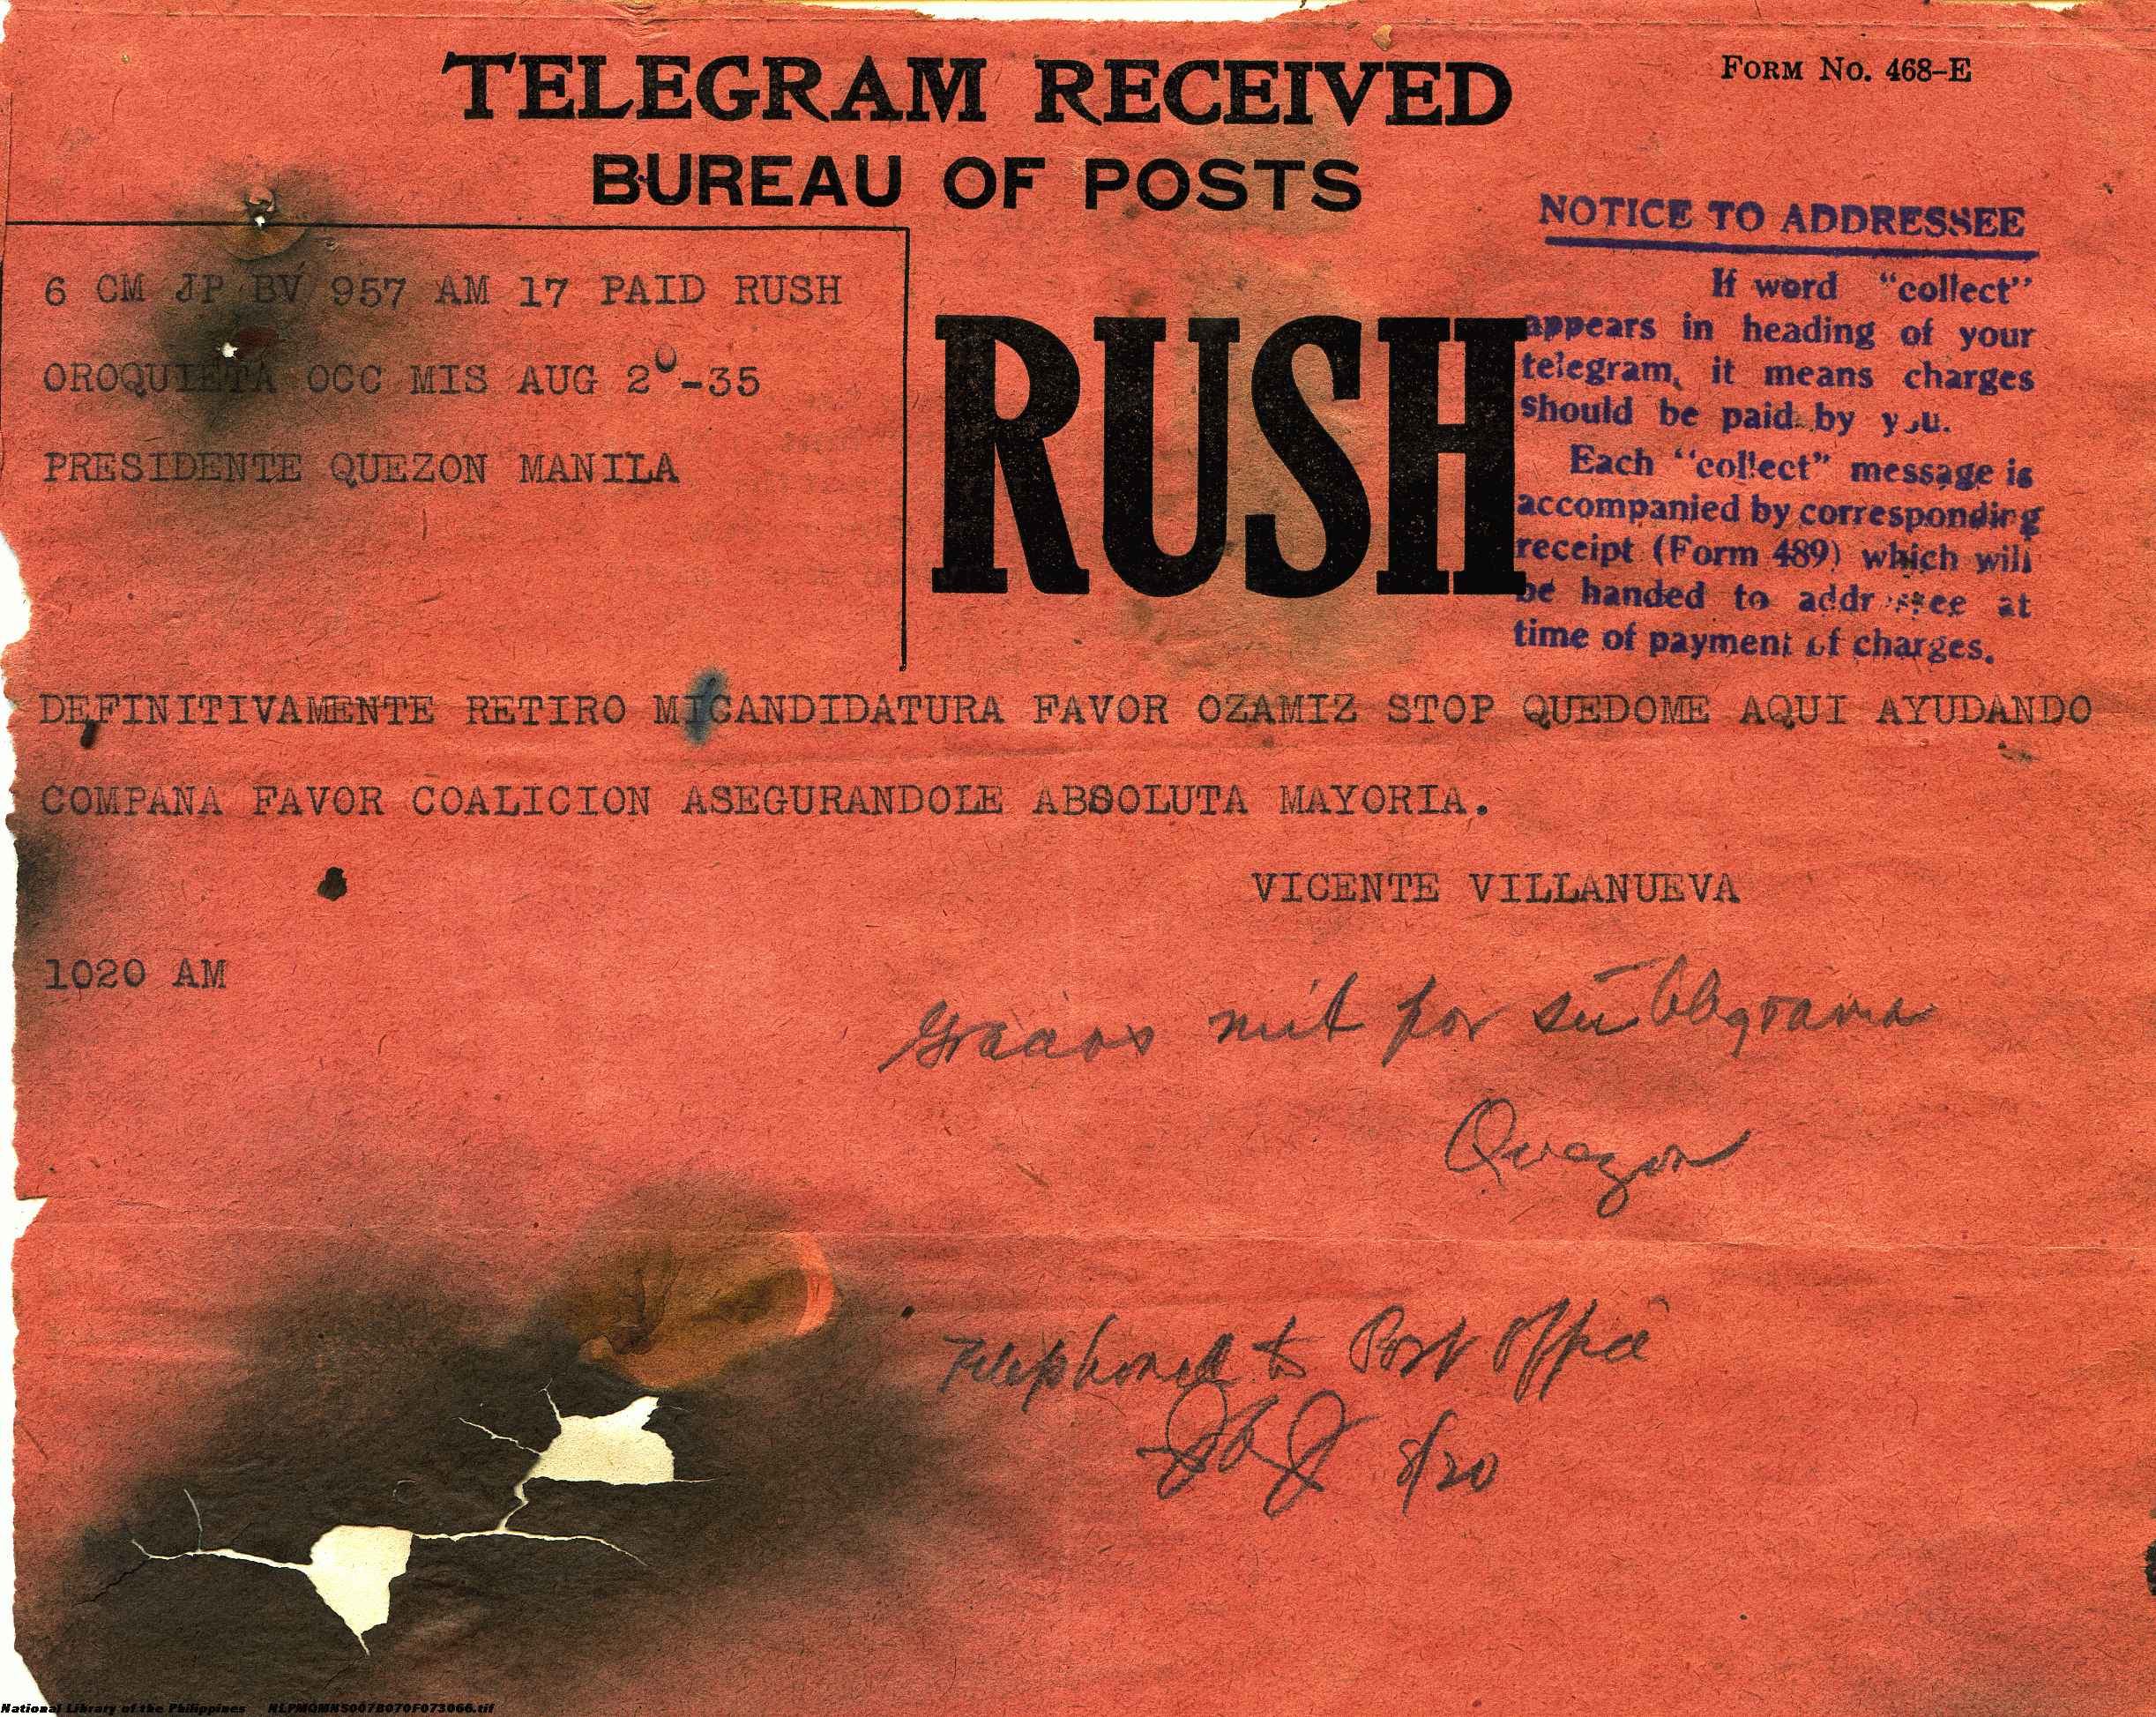 TELEGRAM RECEIVED
FORM NO. 468-E
BUREAU OF POSTS
6 CM JP BV 957 AM 17 PAID RUSH
OROQUIETA OCC MIS AUG 20-35
PRESIDENTE QUEZON MANILA
RUSH
NOTICE TO ADDRESSEE
If word "collect"
appears in heading of your
telegram, it means charges
should be paid by you.
Each "collect" message is
accompanied by corresponding
receipt (Form 489) which will
be handed to addressee at
time of payment of charges.
DEFINITIVAMENTE RETIRO MI CANDIDATURA FAVOR OZAMIZ STOP QUEDOME AQUI AYUDANDO
COMPANA FAVOR COALICION ASEGURANDOLE ABSOLUTA MAYORIA.
VICENTE VILLANUEVA
1020 AM
Gracias mil por su telegrama
Quezon
Telephoned to Post Office
8/20
National Library of the Philippines NLPMQMNS007B070F073066.tif